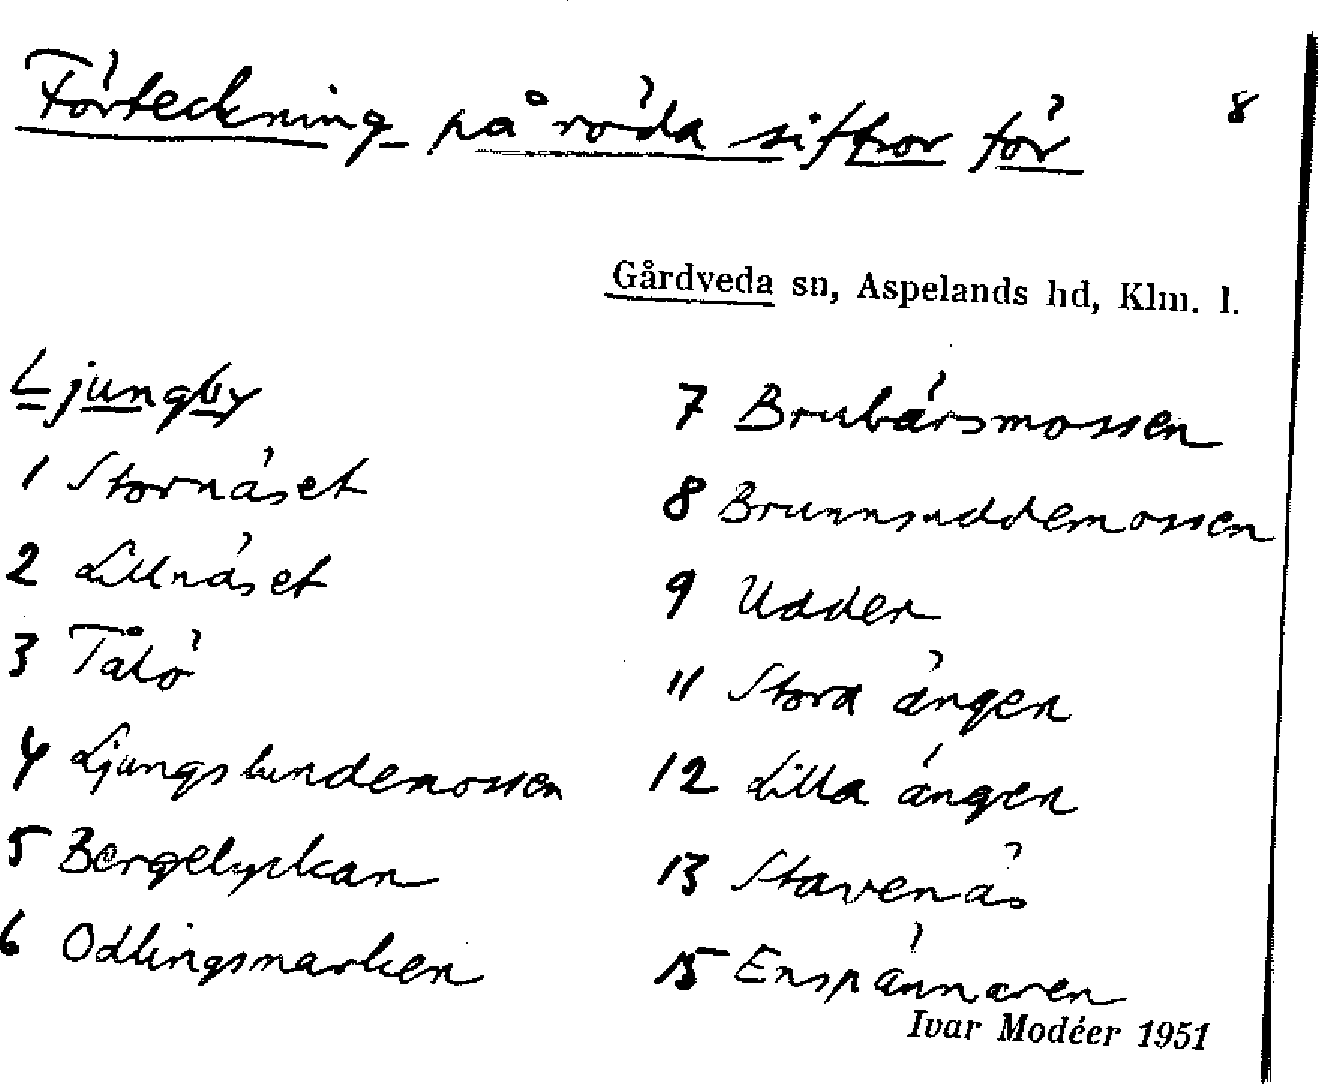 Förteckning på röda siffror för 8
Gårdveda sn, Aspelands hd, Klm. l.
Ljungby
1 Stornäset
2 Lillnäset
3 Tålö
4 Ljungslundemossen
5 Bergelyckan
6 Odlingsmarken
7 Brubärsmossen
8 Brunnsuddemossen
9 Udden
11 Stora ängen
12 Lilla ängen
13 Stavenäs
15 Enspännaren
Ivar Modéer 1951